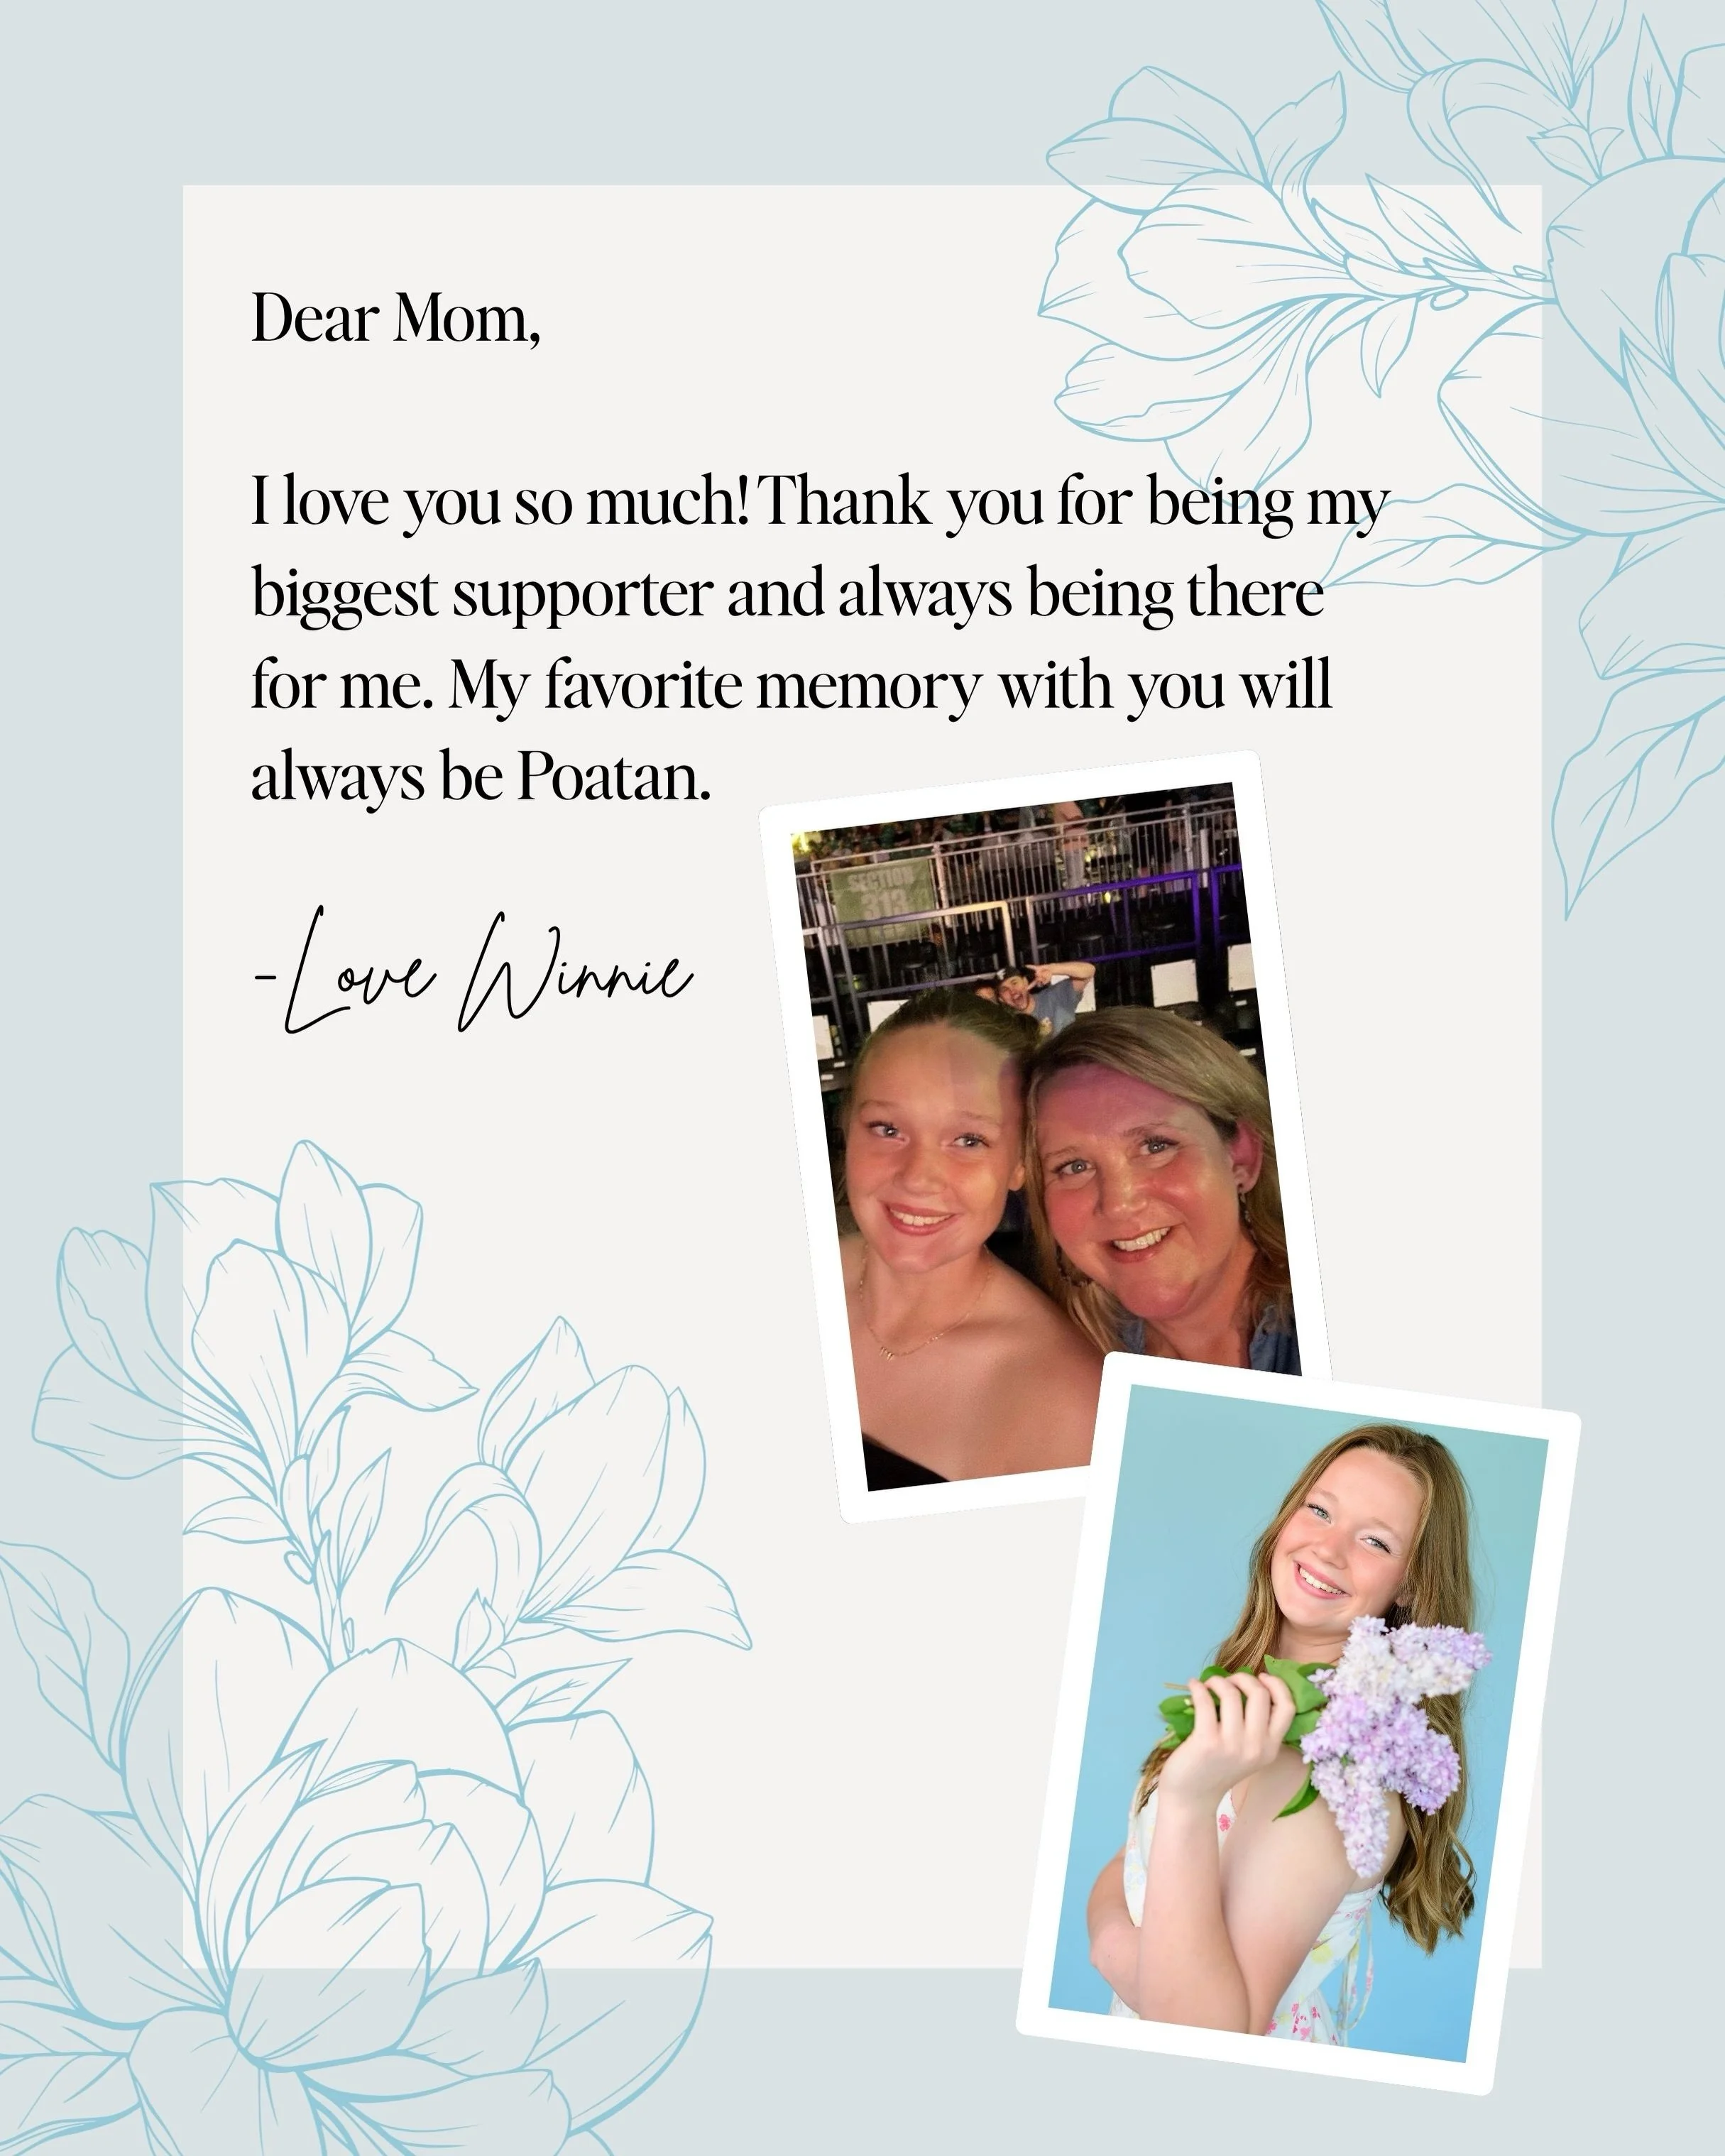 Dear Mom,
I love you so much! Thank you for being my
biggest supporter and always being there
for me. My favorite memory with you will
always be Poatan.
-Love Winnie
SECTION
313